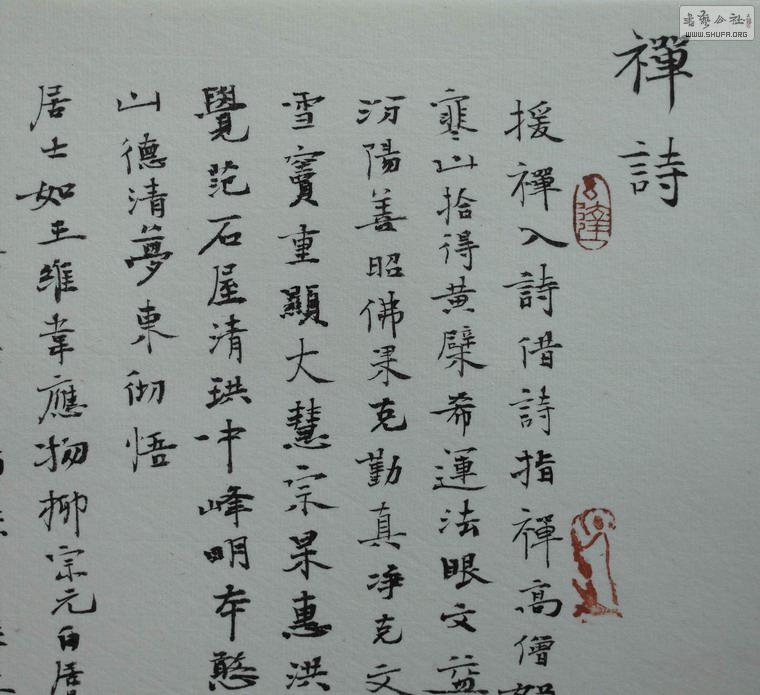 禪詩
援禪入詩借詩指禪高僧如
寒山拾得黄檗希運法眼文益
汾陽善昭佛果克勤真净克文
雪竇重顯大慧宗杲惠洪
覺范石屋清珙中峰明本憨
山德清夢東徹悟
居士如王維韋應物柳宗元白居
書藝公社
WWW.SHUFA.ORG